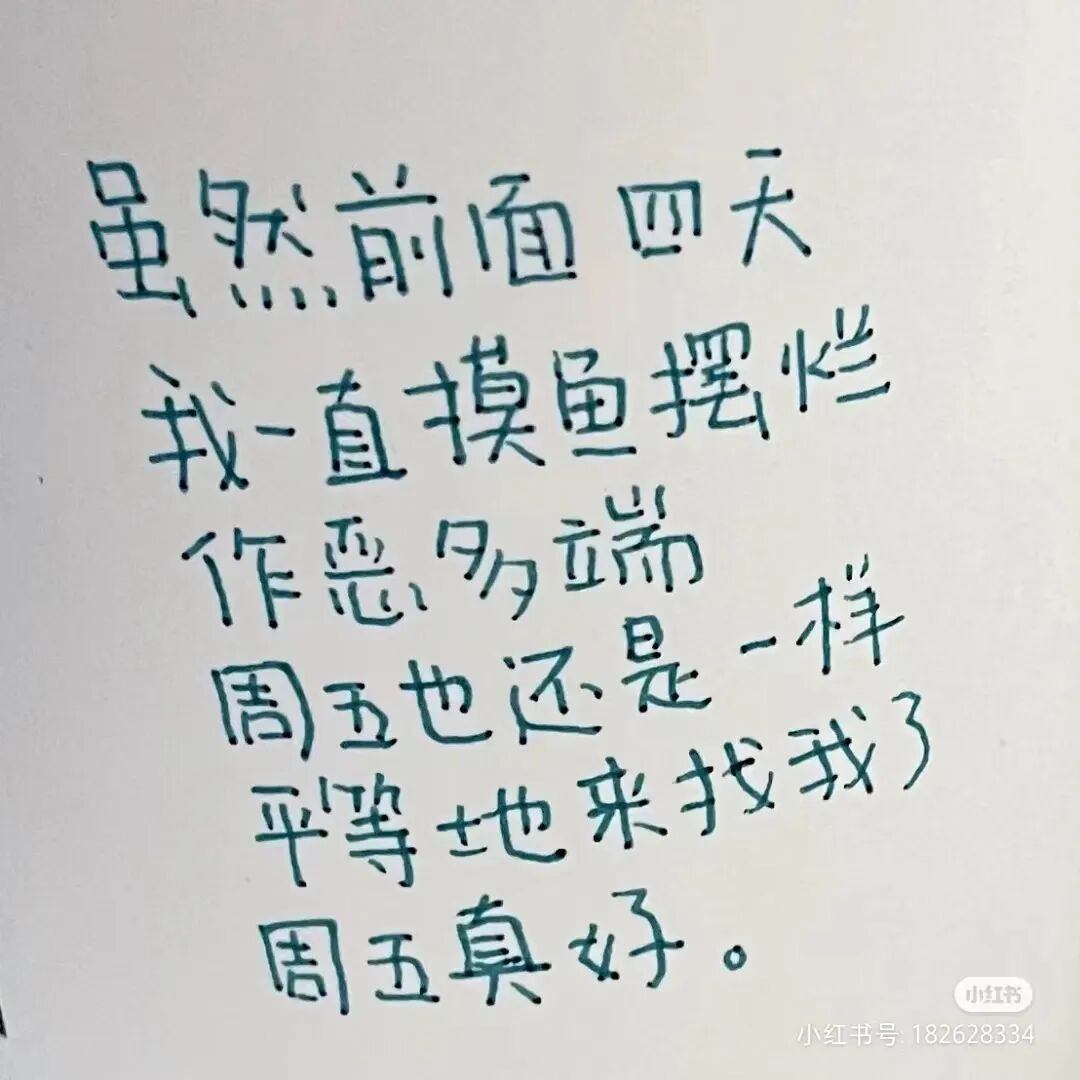 虽然前面四天
我一直摸鱼摆烂
作恶多端
周五也还是一样
平等地来找我了
周五真好。
小红书
小红书号: 182628334